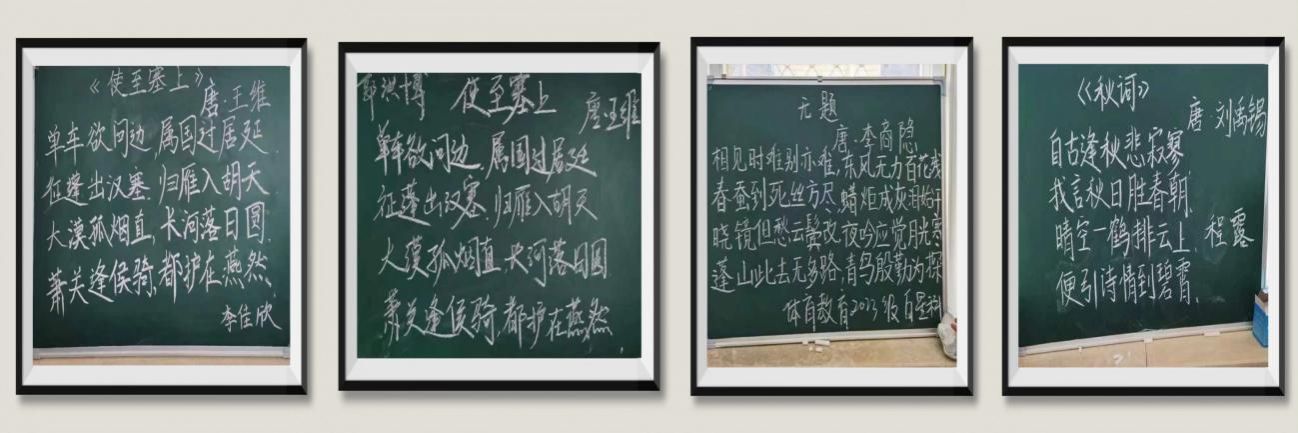 《使至塞上》
唐·王维
单车欲问边,属国过居延.
征蓬出汉塞.归雁入胡天
大漠孤烟直,长河落日圆.
萧关逢侯骑,都护在燕然.
李佳欣
洪博
使至塞上
唐·王维
单车欲问边,属国过居延
征蓬出汉塞.归雁入胡天
大漠孤烟直,长河落日圆
萧关逢侯骑,都护在燕然.
无题
唐·李商隐
相见时难别亦难,东风无力百花残
春蚕到死丝方尽,蜡炬成灰泪始干
晓镜但愁云鬓改,夜吟应觉月光寒
蓬山此去无多路,青鸟殷勤为探
体育教育2023级白
《秋词》
唐·刘禹锡
自古逢秋悲寂寥
我言秋日胜春朝.
晴空一鹤排云上,
程露
便引诗情到碧霄.